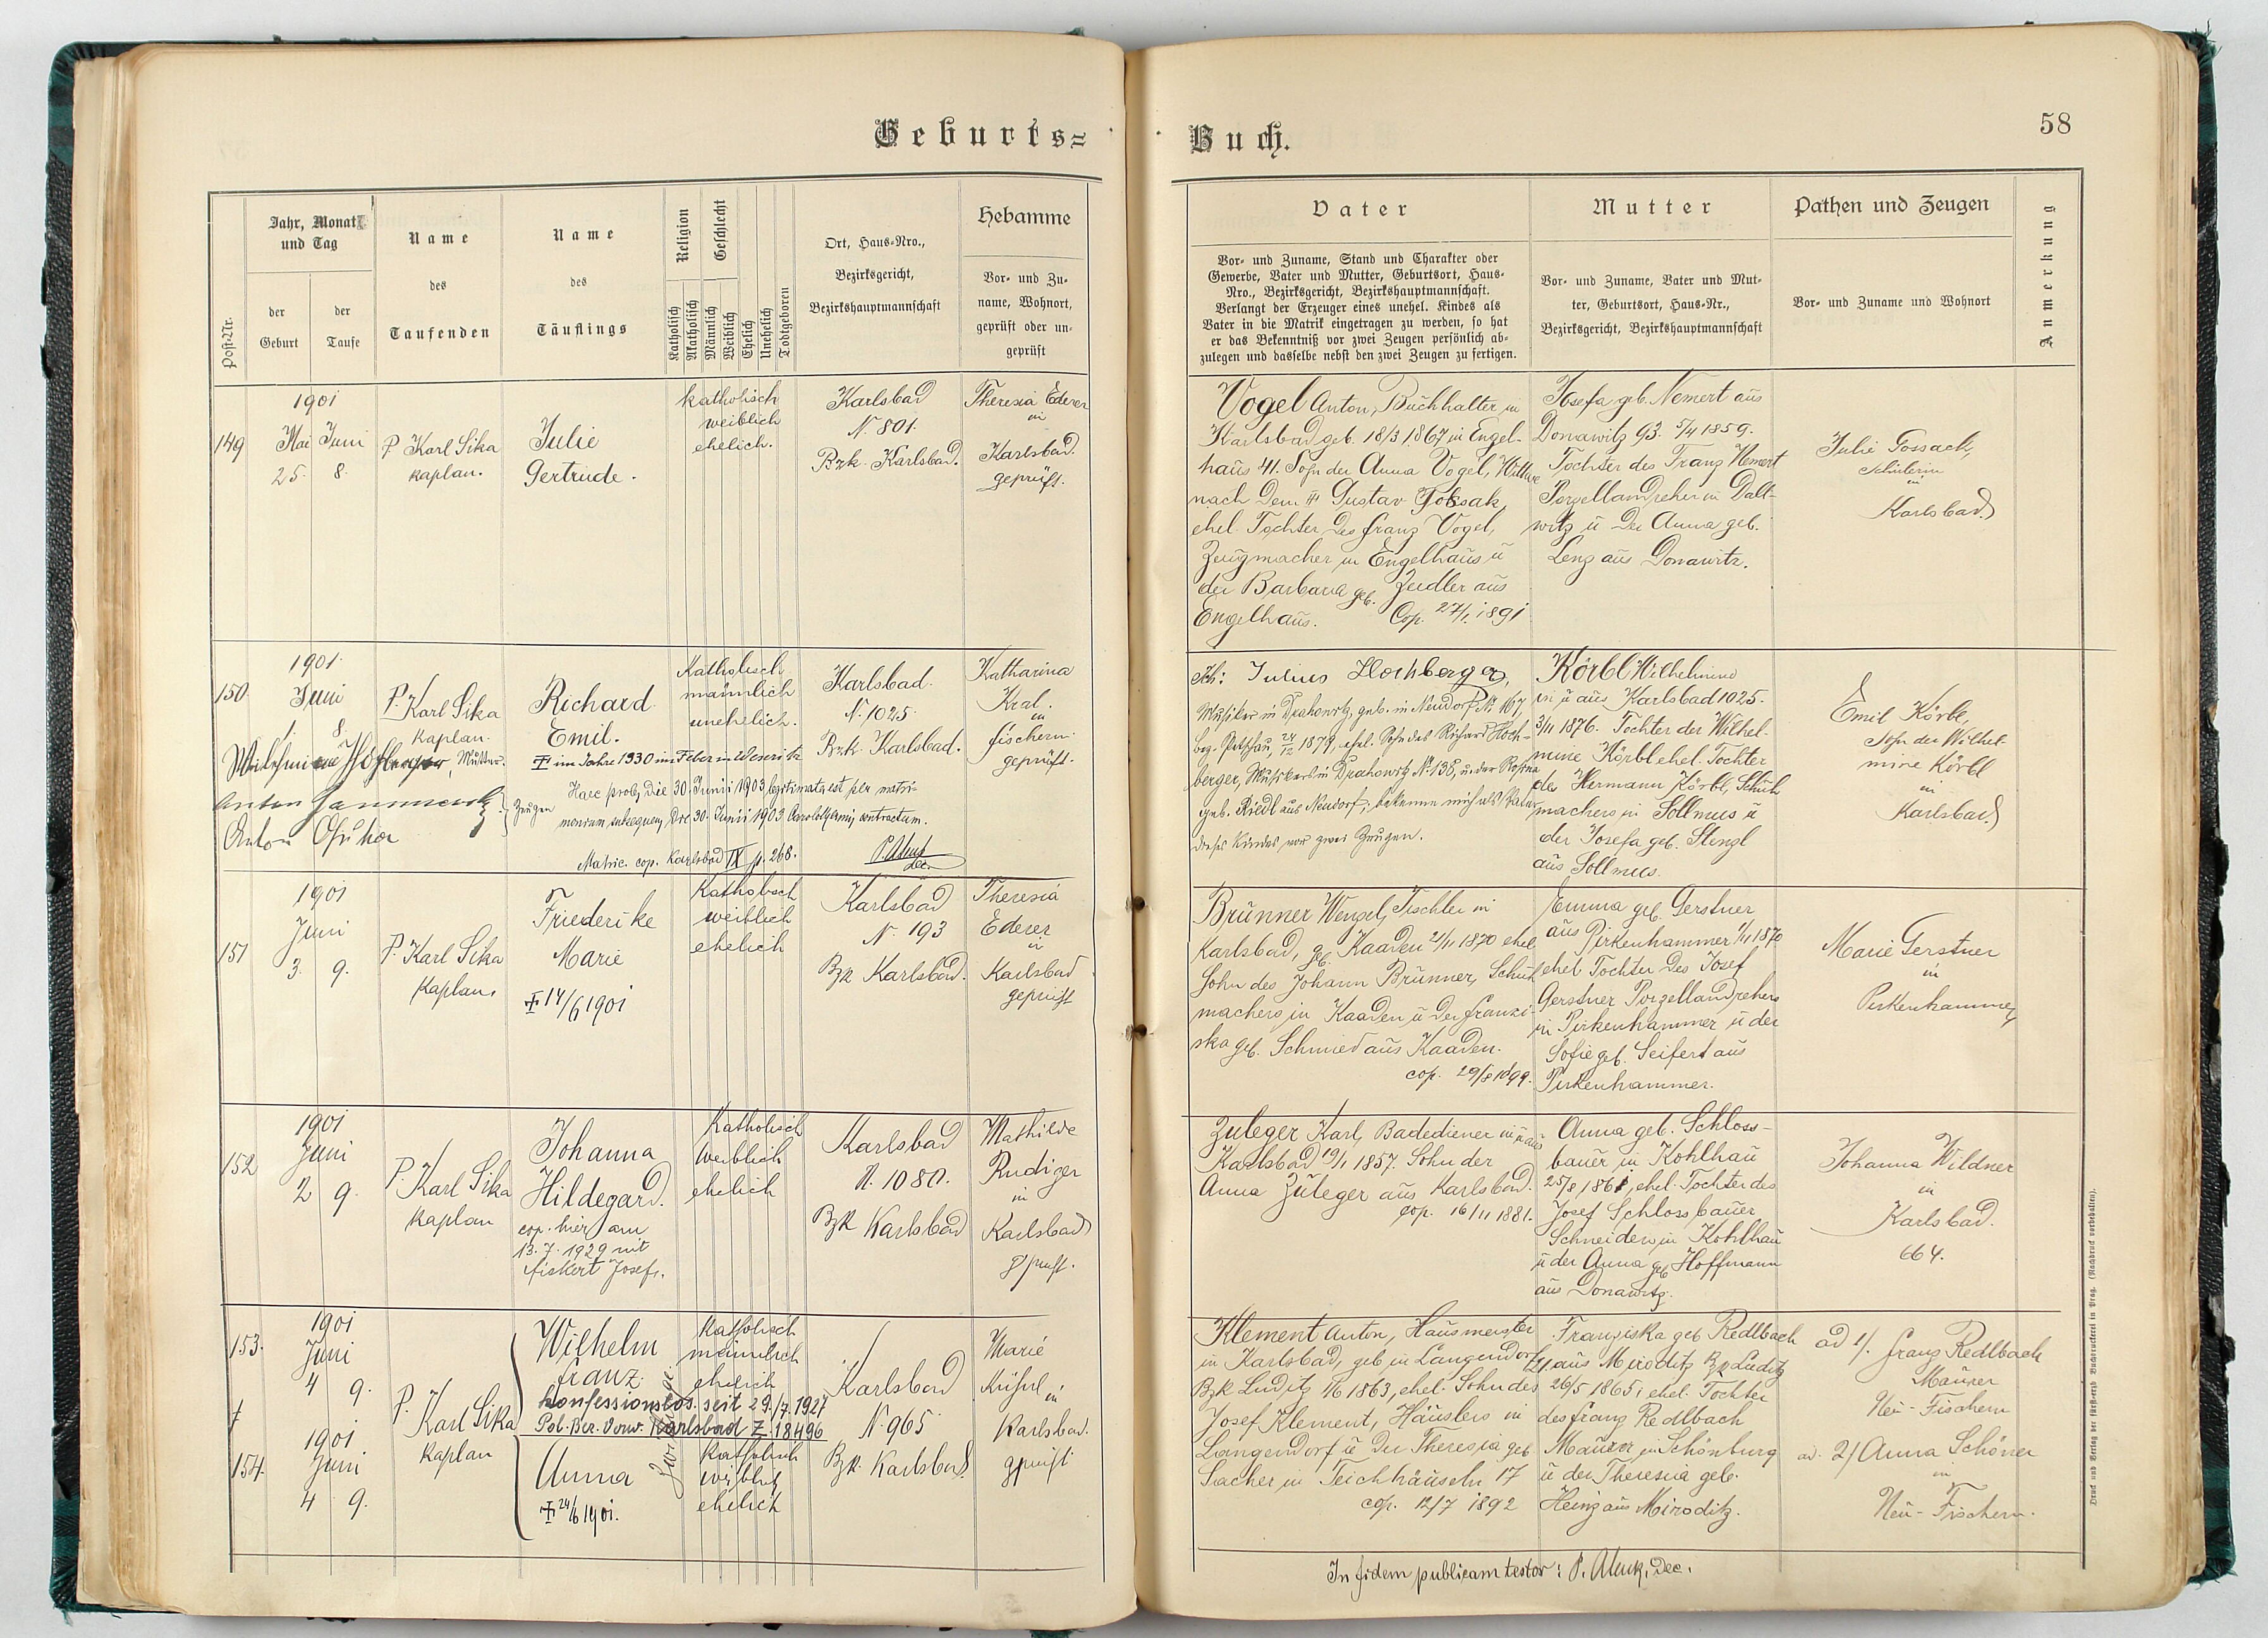 Geburts=
Buch.
58
Post-Nr.
Jahr, Monat
und Tag
der
Geburt
der
Taufe
Name
des
Taufenden
Name
des
Täuflings
Religion
Katholisch
Akatholisch
Geschlecht
Männlich
Weiblich
Ehelich
Unehelich
Todtgeboren
Ort, Haus-Nro.,
Bezirksgericht,
Bezirkshauptmannschaft
Hebamme
Vor- und Zu-
name, Wohnort,
geprüft oder un-
geprüft
Vater
Vor- und Zuname, Stand und Charakter oder
Gewerbe, Vater und Mutter, Geburtsort, Haus-
Nro., Bezirksgericht, Bezirkshauptmannschaft.
Verlangt der Erzeuger eines unehel. Kindes als
Vater in die Matrik eingetragen zu werden, so hat
er das Bekenntniß vor zwei Zeugen persönlich ab-
zulegen und dasselbe nebst den zwei Zeugen zu fertigen.
Mutter
Vor- und Zuname, Vater und Mut-
ter, Geburtsort, Haus-Nr.,
Bezirksgericht, Bezirkshauptmannschaft
Pathen und Zeugen
Vor- und Zuname und Wohnort
Anmerkung
149
1901
Mai Juni
25. 8.
P. Karl Sika
kaplan.
Julie
Gertrude.
katholisch
weiblich
ehelich.
Karlsbad
N. 801.
Bzk. Karlsbad.
Theresia Ederer
in
Karlsbad.
geprüft.
Vogel Anton, Buchhalter in
Karlsbad geb. 18/3 1867 in Engel-
haus 41. Sohn der Anna Vogel, Witwe
nach dem Gustav Gossak,
ehel. Tochter des Franz Vogel,
Zeugmacher in Engelhaus u
der Barbara geb. Zeidler aus
Engelhaus. Cop. 27/1 1891
Josefa geb. Nemert aus
Donawitz 93. 5/4 1859.
Tochter des Franz Nemert
Porzellandreher in Dall-
witz u der Anna geb.
Lenz aus Donawitz.
Julie Gossack,
Schülerin
in
Karlsbad
150.
1901.
Juni
1. 8.
P. Karl Sika
kaplan.
Richard
Emil.
im Jahre 1930 im Feber in Weseritz
Katholisch
männlich
unehelich.
Karlsbad.
N. 1025.
Bzk. Karlsbad.
Katharina
Kral.
in
Fischern.
geprüft.
Mutter.
Anton
Anton
Zeugen
Haec proles die 30. Junii 1903 legitimata est per matri-
monium subsequens die 30. Junii 1903 contractum.
Matric. cop. Karlsbad IX p. 268.
Dec.
Ich: Julius Hochberger,
Musiker in Drahowitz, geb. in Neudorf N. 167,
Bez. Petschau, 24/12 1879, ehel. Sohn des Richard Hoch-
berger, Musikers in Drahowitz N. 138, u. der Rosina
geb. Riedl aus Neudorf, bekenne mich als Vater
dieses Kindes vor zwei Zeugen.
Körbl Wilhelmine
in u aus Karlsbad 1025.
3/11 1876. Tochter der Wilhel-
mine Körbl ehel. Tochter
des Hermann Körbl, Schuh-
machers in Sollmus u
der Josefa geb. Stengl
aus Sollmus.
Emil Körbl,
Sohn der Wilhel-
mine Körbl
in
Karlsbad
151
1901
Juni
3. 9.
P. Karl Sika
Kaplan.
Friederike
Marie
14/6 1901
Katholisch
weiblich
ehelich
Karlsbad
N. 193
Bzk Karlsbad.
Theresia
Ederer
in
Karlsbad
geprüft
Brünner Wenzel, Tischler in
Karlsbad, geb. Kaaden 2/11 1870 ehel.
Sohn des Johann Brünner, Schuh-
machers in Kaaden u der Franzi-
ska geb. Schmied aus Kaaden.
cop. 29/8 1899.
Emma geb. Gerstner
aus Pirkenhammer 1/11 1870
ehel. Tochter des Josef
Gerstner Porzellandrehers
in Pirkenhammer u der
Sofie geb. Seifert aus
Pirkenhammer.
Marie Gerstner
in
Pirkenhammer
152
1901
Juni
2 9.
P. Karl Sika
kaplan
Johanna
Hildegard.
cop. hier am
13. 7. 1929 mit
Fiskert Josef.
Katholisch
weiblich
ehelich
Karlsbad
N. 1080.
Bzk Karlsbad
Mathilde
Rudiger
in
Karlsbad
gepruft.
Zuleger Karl, Badediener in u aus
Karlsbad 19/1 1857. Sohn der
Anna Zuleger aus Karlsbad.
cop. 16/11 1881.
Anna geb. Schloss-
bauer in Kohlhau
25/8 1861, ehel. Tochter des
Josef Schlossbauer
Schneiders in Kohlhau
u der Anna geb Hoffmann
aus Donawitz.
Johanna Wildner
in
Karlsbad.
664.
153.
1901
Juni
4 9.
154.
1901.
Juni
4 9.
P. Karl Sika
kaplan
Wilhelm
Franz
konfessionslos seit 29./7. 1927
Pol. Bez. Verw. Karlsbad Z. 18496
Anna
24/6 1901.
katholisch
männlich
ehelich
katholisch
weiblich
ehelich
Karlsbad
N. 965
Bzk. Karlsbad.
Marie
in
Karlsbad.
geprüft
Klement Anton, Hausmeister
in Karlsbad, geb in Langendorf 21
Bzk Luditz 1/6 1863, ehel. Sohn des
Josef Klement, Häuslers in
Langendorf u der Theresia geb
Sacher in Teichhäuseln 17
cop. 12/7 1892
Franziska geb Redlbach
aus Miroditz Bzk Luditz
26/5 1865, ehel. Tochter
des Franz Redlbach
Maurer in Schönburg
u der Theresia geb.
Heinz aus Miroditz.
ad 1/. Franz Redlbach
Maurer
Neu-Fischern
ad. 2/ Anna Schöner
in
Neu-Fischern.
In fidem publicam testor: P. Dec.
Druck und Verlag der fürst-erzb. Buchdruckerei in Prag. (Nachdruck vorbehalten).